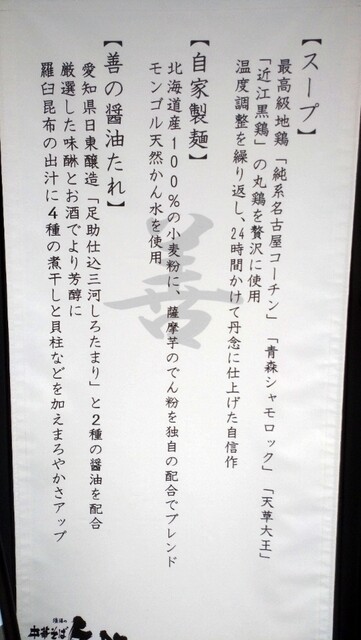 【スープ】
最高級地鶏「純系名古屋コーチン」「青森シャモロック」「天草大王」
「近江黒鶏」の丸鶏を贅沢に使用
温度調整を繰り返し、24時間かけて丹念に仕上げた自信作
【自家製麺】
北海道産100%の小麦粉に、薩摩芋のでん粉を独自の配合でブレンド
モンゴル天然かん水を使用
【善の醤油たれ】
愛知県日東醸造「足助仕込三河しろたまり」と2種の醤油を配合
厳選した味醂とお酒でより芳醇に
羅臼昆布の出汁に4種の煮干しと貝柱などを加えまろやかさアップ
善